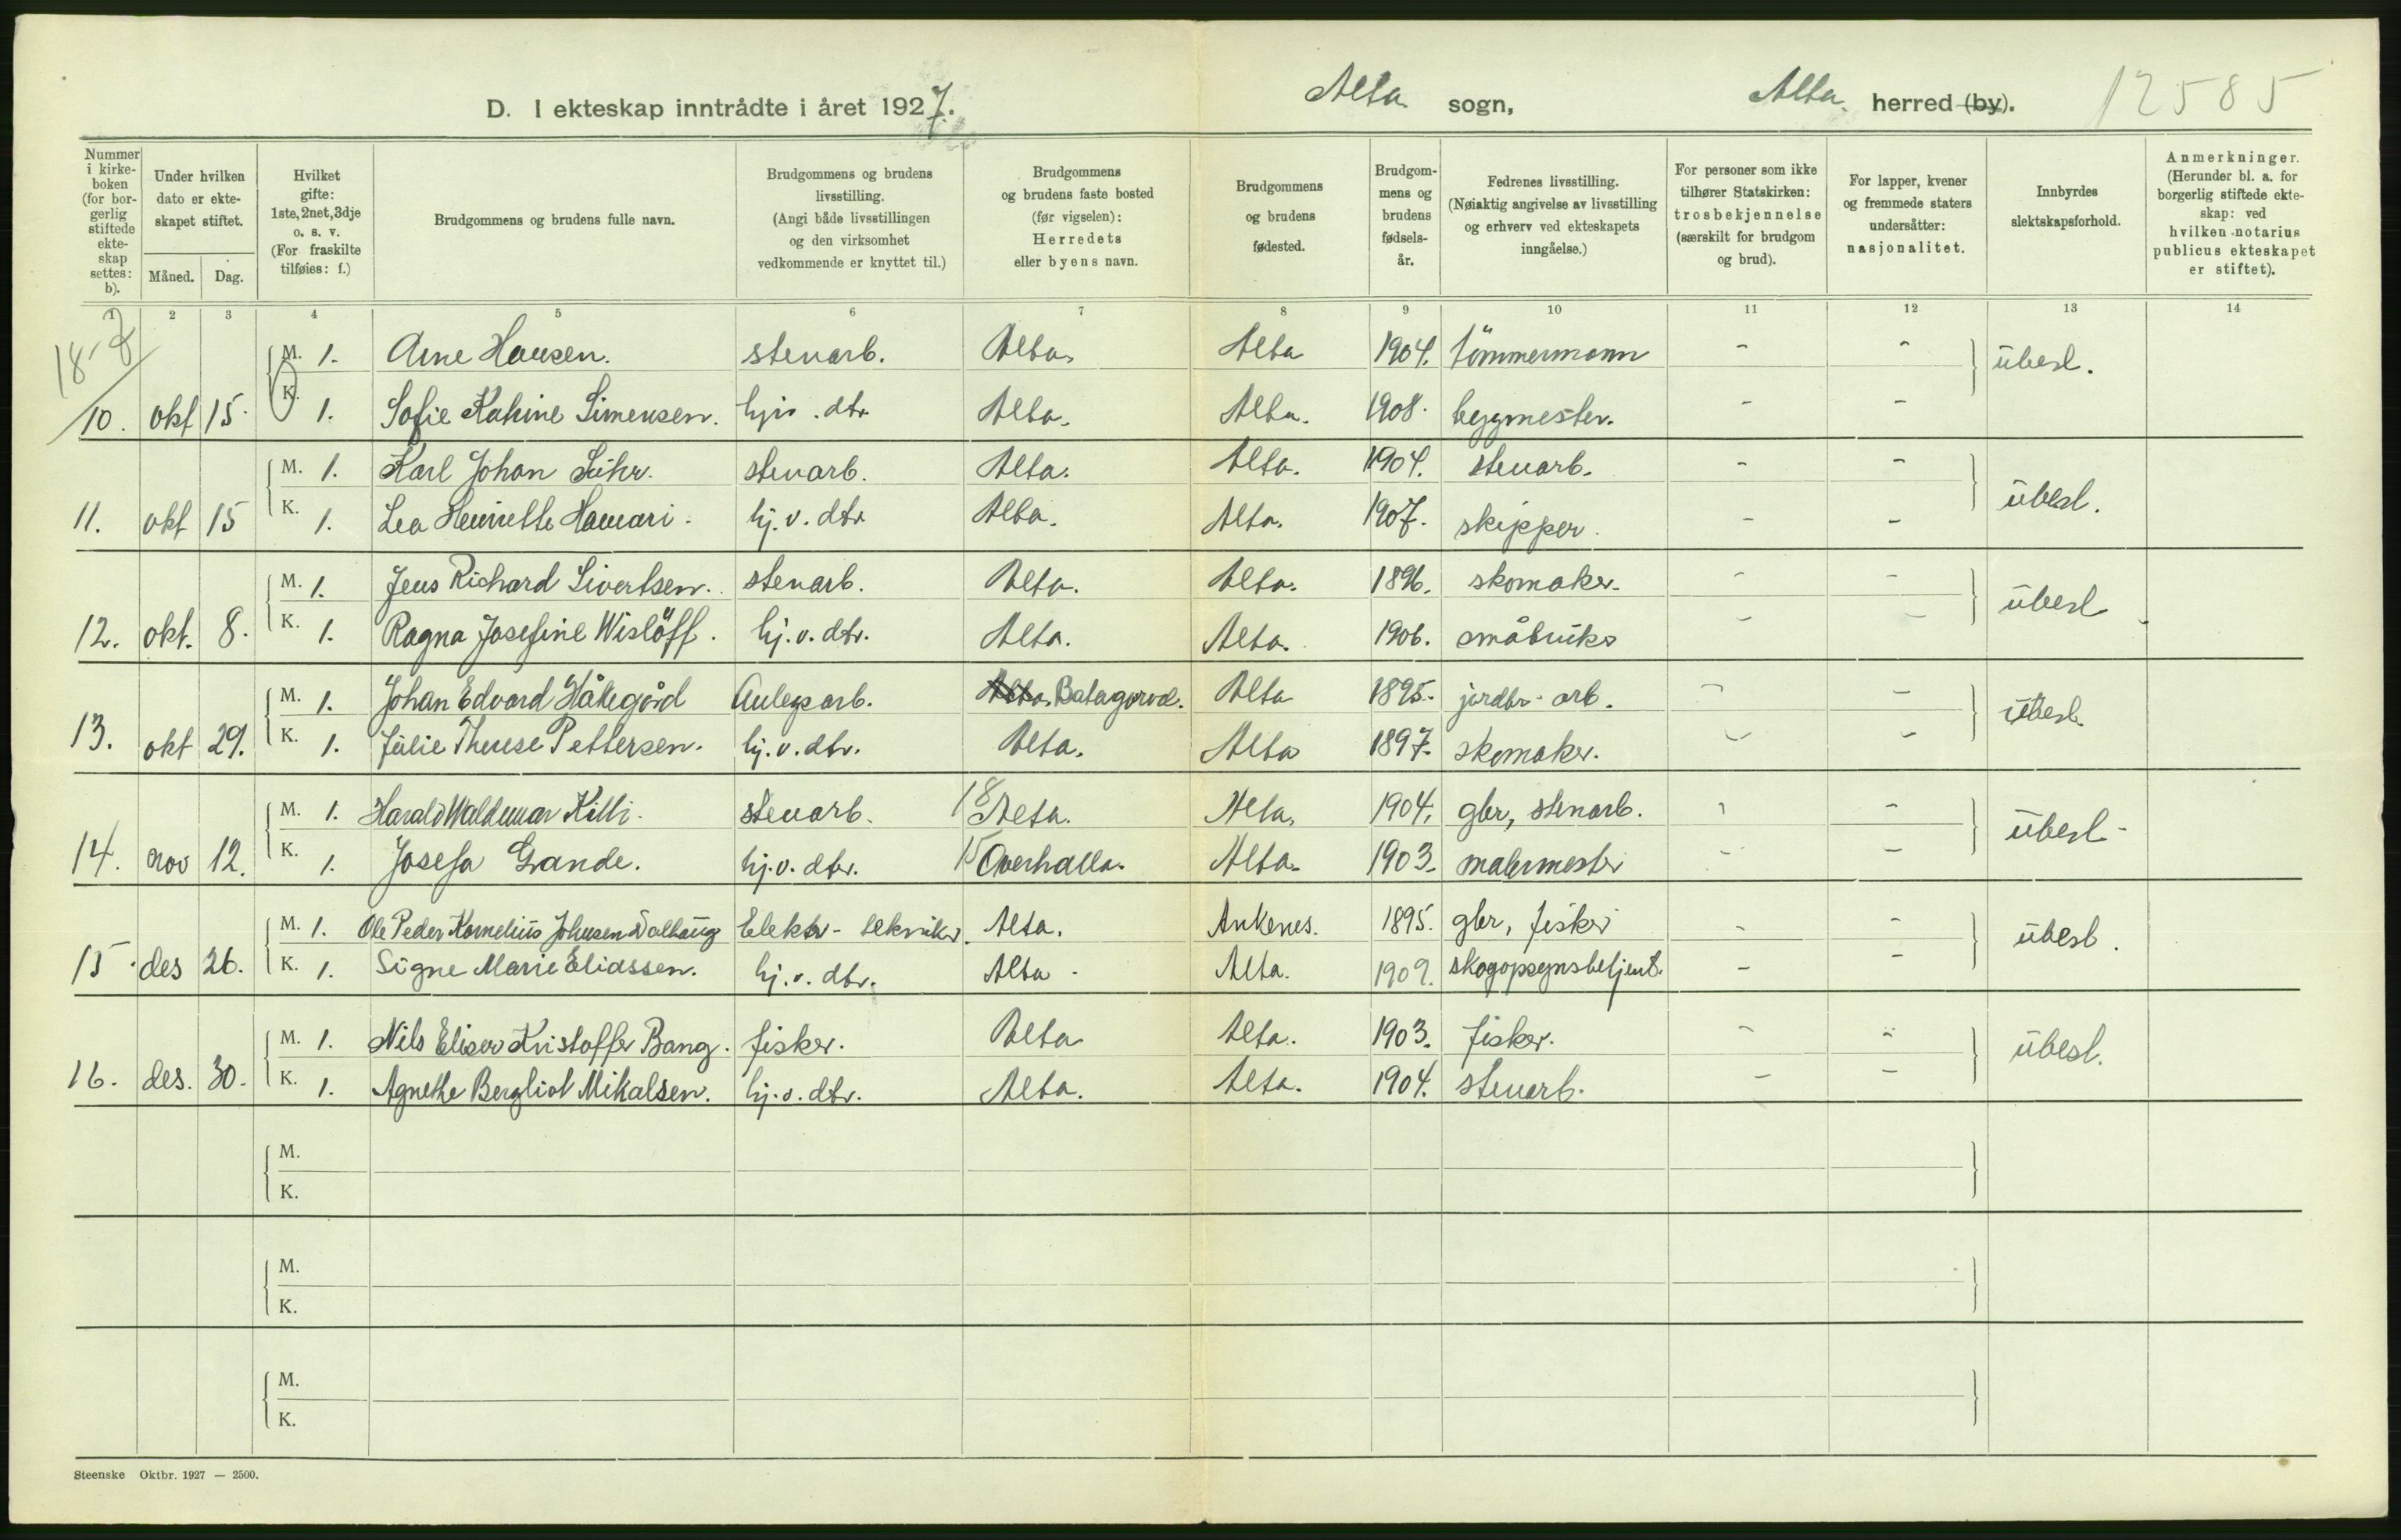 D. I ekteskap inntrådte i året 1927. Alta sogn, Alta herred (by). 12585
Nummer i kirke-boken (for bor-gerlig stiftede ekte-skap settes: b).
Under hvilken dato er ekte-skapet stiftet.
Måned. Dag.
Hvilket gifte: 1ste, 2net, 3dje o. s. v. (For fraskilte tilføies: f.)
Brudgommens og brudens fulle navn.
Brudgommens og brudens livsstilling. (Angi både livsstillingen og den virksomhet vedkommende er knyttet til.)
Brudgommens og brudens faste bosted (før vigselen): Herredets eller byens navn.
Brudgommens og brudens fødested.
Brudgom-mens og brudens fødsels-år.
Fedrenes livsstilling. (Nøiaktig angivelse av livsstilling og erhverv ved ekteskapets inngåelse.)
For personer som ikke tilhører Statskirken: trosbekjennelse (særskilt for brudgom og brud).
For lapper, kvener og fremmede staters undersåtter: nasjonalitet.
Innbyrdes slektskapsforhold.
Anmerkninger. (Herunder bl. a. for borgerlig stiftede ekte-skap: ved hvilken notarius publicus ekteskapet er stiftet).
1 2 3 4 5 6 7 8 9 10 11 12 13 14
18-8
M. 1. Arne Hansen. stenarb. Alta. Alta 1904. tömmermann - - übesl.
10. okt 15. K. 1. Sofie Katrine Simensen. hj. v. dtr. Alta. Alta. 1908. byggmester. - -
M. 1. Karl Johan Suhr. stenarb. Alta. Alta. 1904. stenarb. - - übesl.
11. okt 15 K. 1. Lea Henriette Hamari. hj. v. dtr Alta. Alta. 1907. skipper. - -
M. 1. Jens Richard Sivertsen. stenarb. Alta. Alta. 1896. skomaker. - - übesl
12. okt. 8. K. 1. Ragna Josefine Wislöff. hj. v. dtr. Alta. Alta. 1906. småbruks - -
M. 1. Johan Edvard Håkegård Anlegsarb. Alta. Alta 1895. jordbr. arb. - - übesl.
13. okt 29. K. 1. Julie Therese Pettersen. hj. v. dtr. Alta. Alta 1897. skomaker. - -
M. 1. Harald Waldemar Killi. stenarb. 18 Alta. Alta. 1904. gbr, stenarb. - - übesl -
14. nov 12. K. 1. Josefa Grande. hj. v. dtr. 15 Overhalla. Alta. 1903. malermester - -
M. 1. Ole Peder Kornelius Johnsen Dalhaug Elektr- tekniker. Alta. Ankenes. 1895. gbr, fisker - - übesl.
15. des 26. K. 1. Signe Marie Eliassen. hj. v. dtr. Alta. Alta. 1909. skogopsynsbetjent. - -
M. 1. Nils Eliser Kristoffer Bang. fisker. Alta Alta. 1903. fisker. - - übesl.
16. des. 30. K. 1. Agnethe Bergliot Mikalsen. hj. v. dtr. Alta. Alta. 1904. stenarb. - -
M.
K.
M.
K.
M.
K.
Steenske Oktbr. 1927 — 2500.